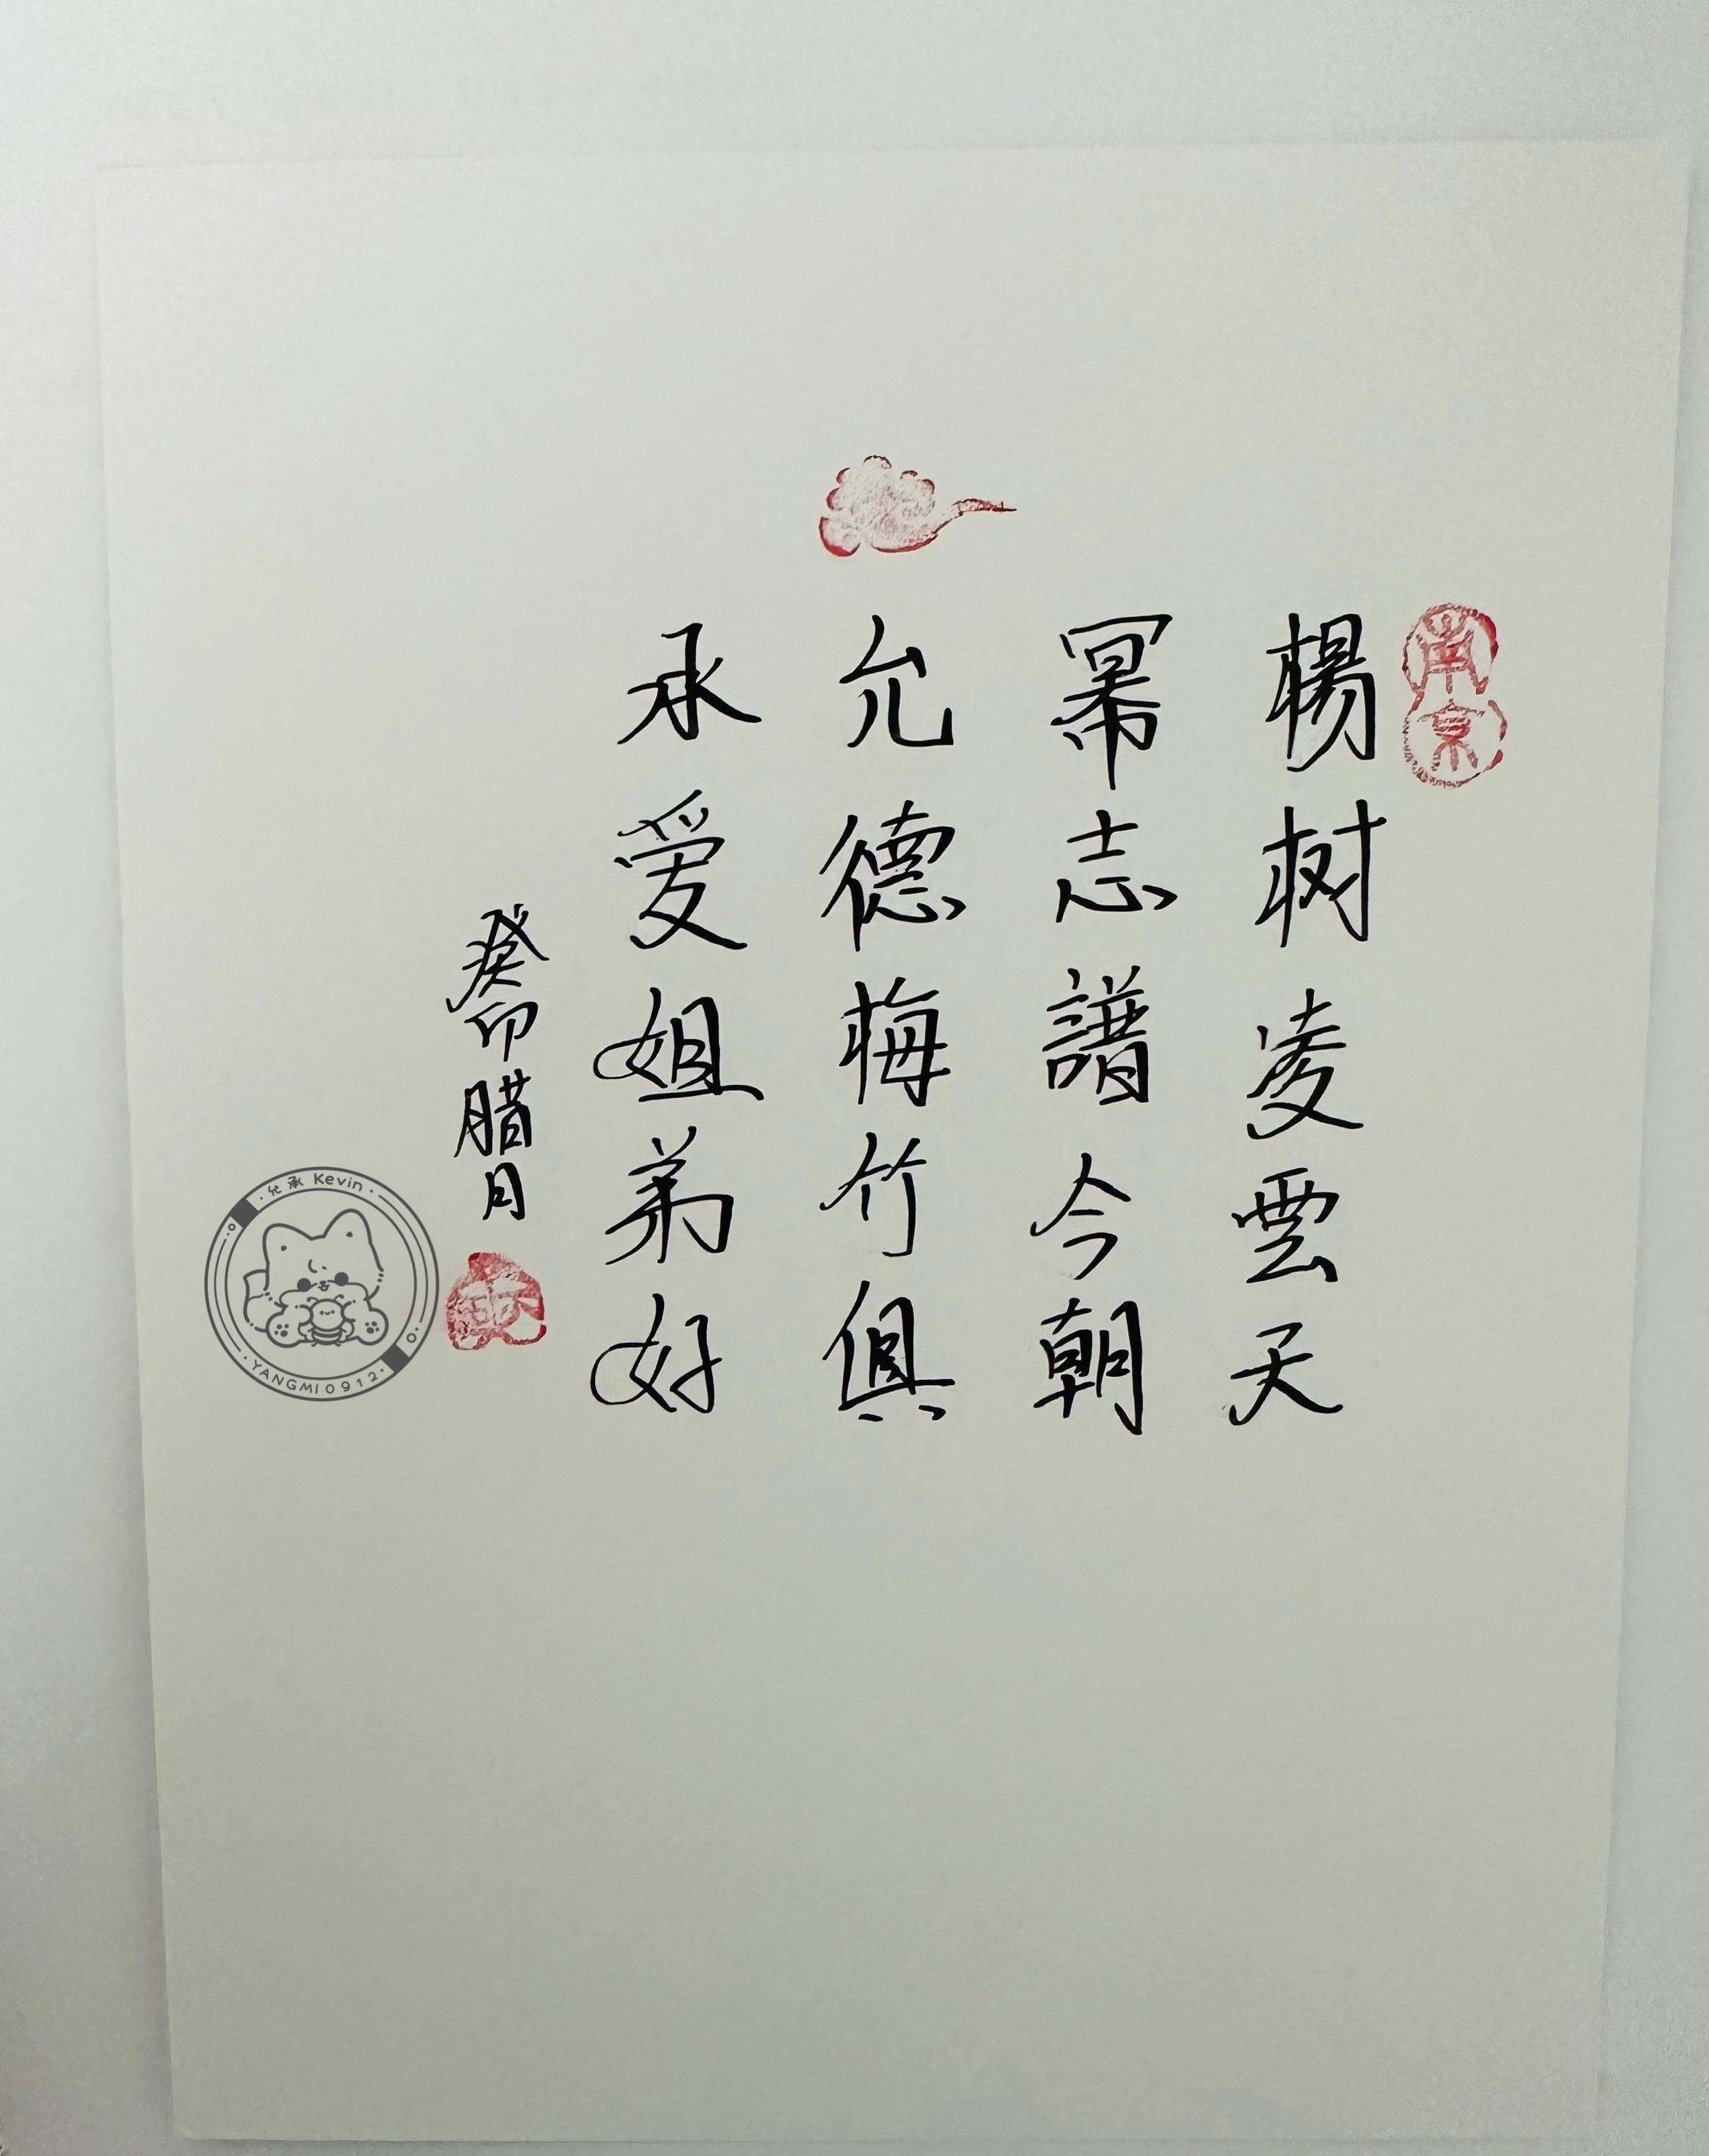 南京
楊树凌雲天
冪志譜今朝
允德梅竹俱
承爱姐弟好
癸卯腊月
·允承 Kevin·
·YANGMI0912·